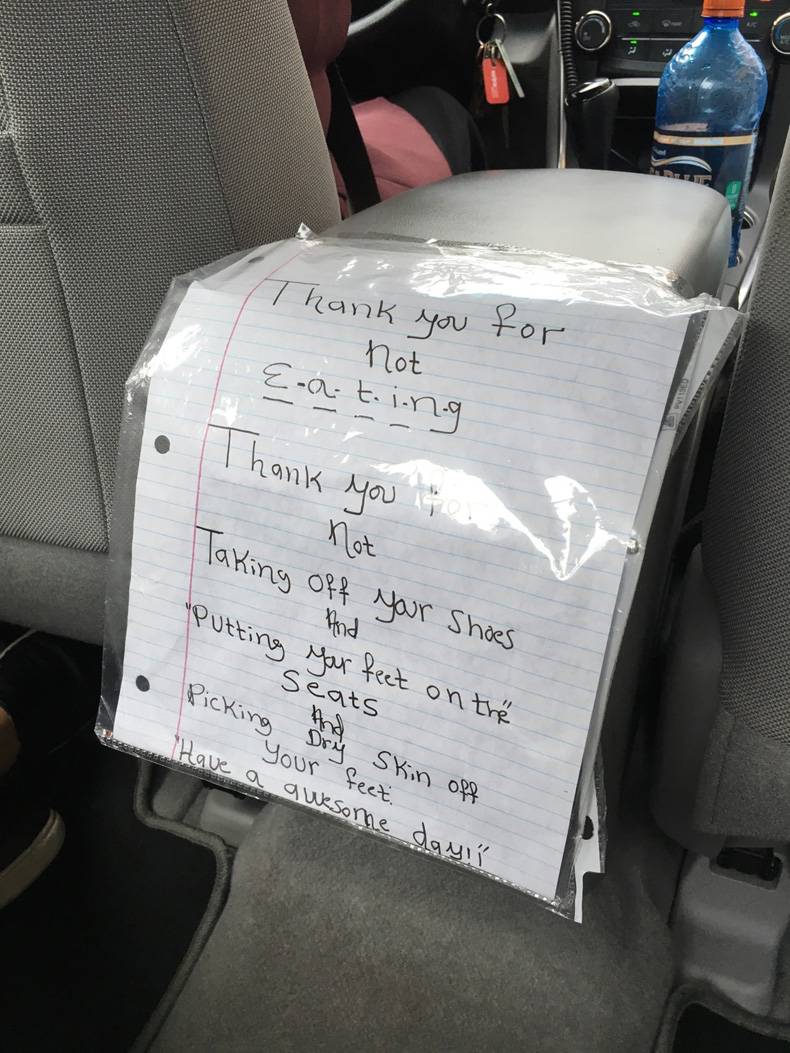 Thank you for
Not
E-a-t-i-n-g
Thank you for
Not
Taking off your shoes
And
"Putting your feet on the"
Seats
And
Picking Dry skin off
your feet.
"Have a awesome day!!"
A/C